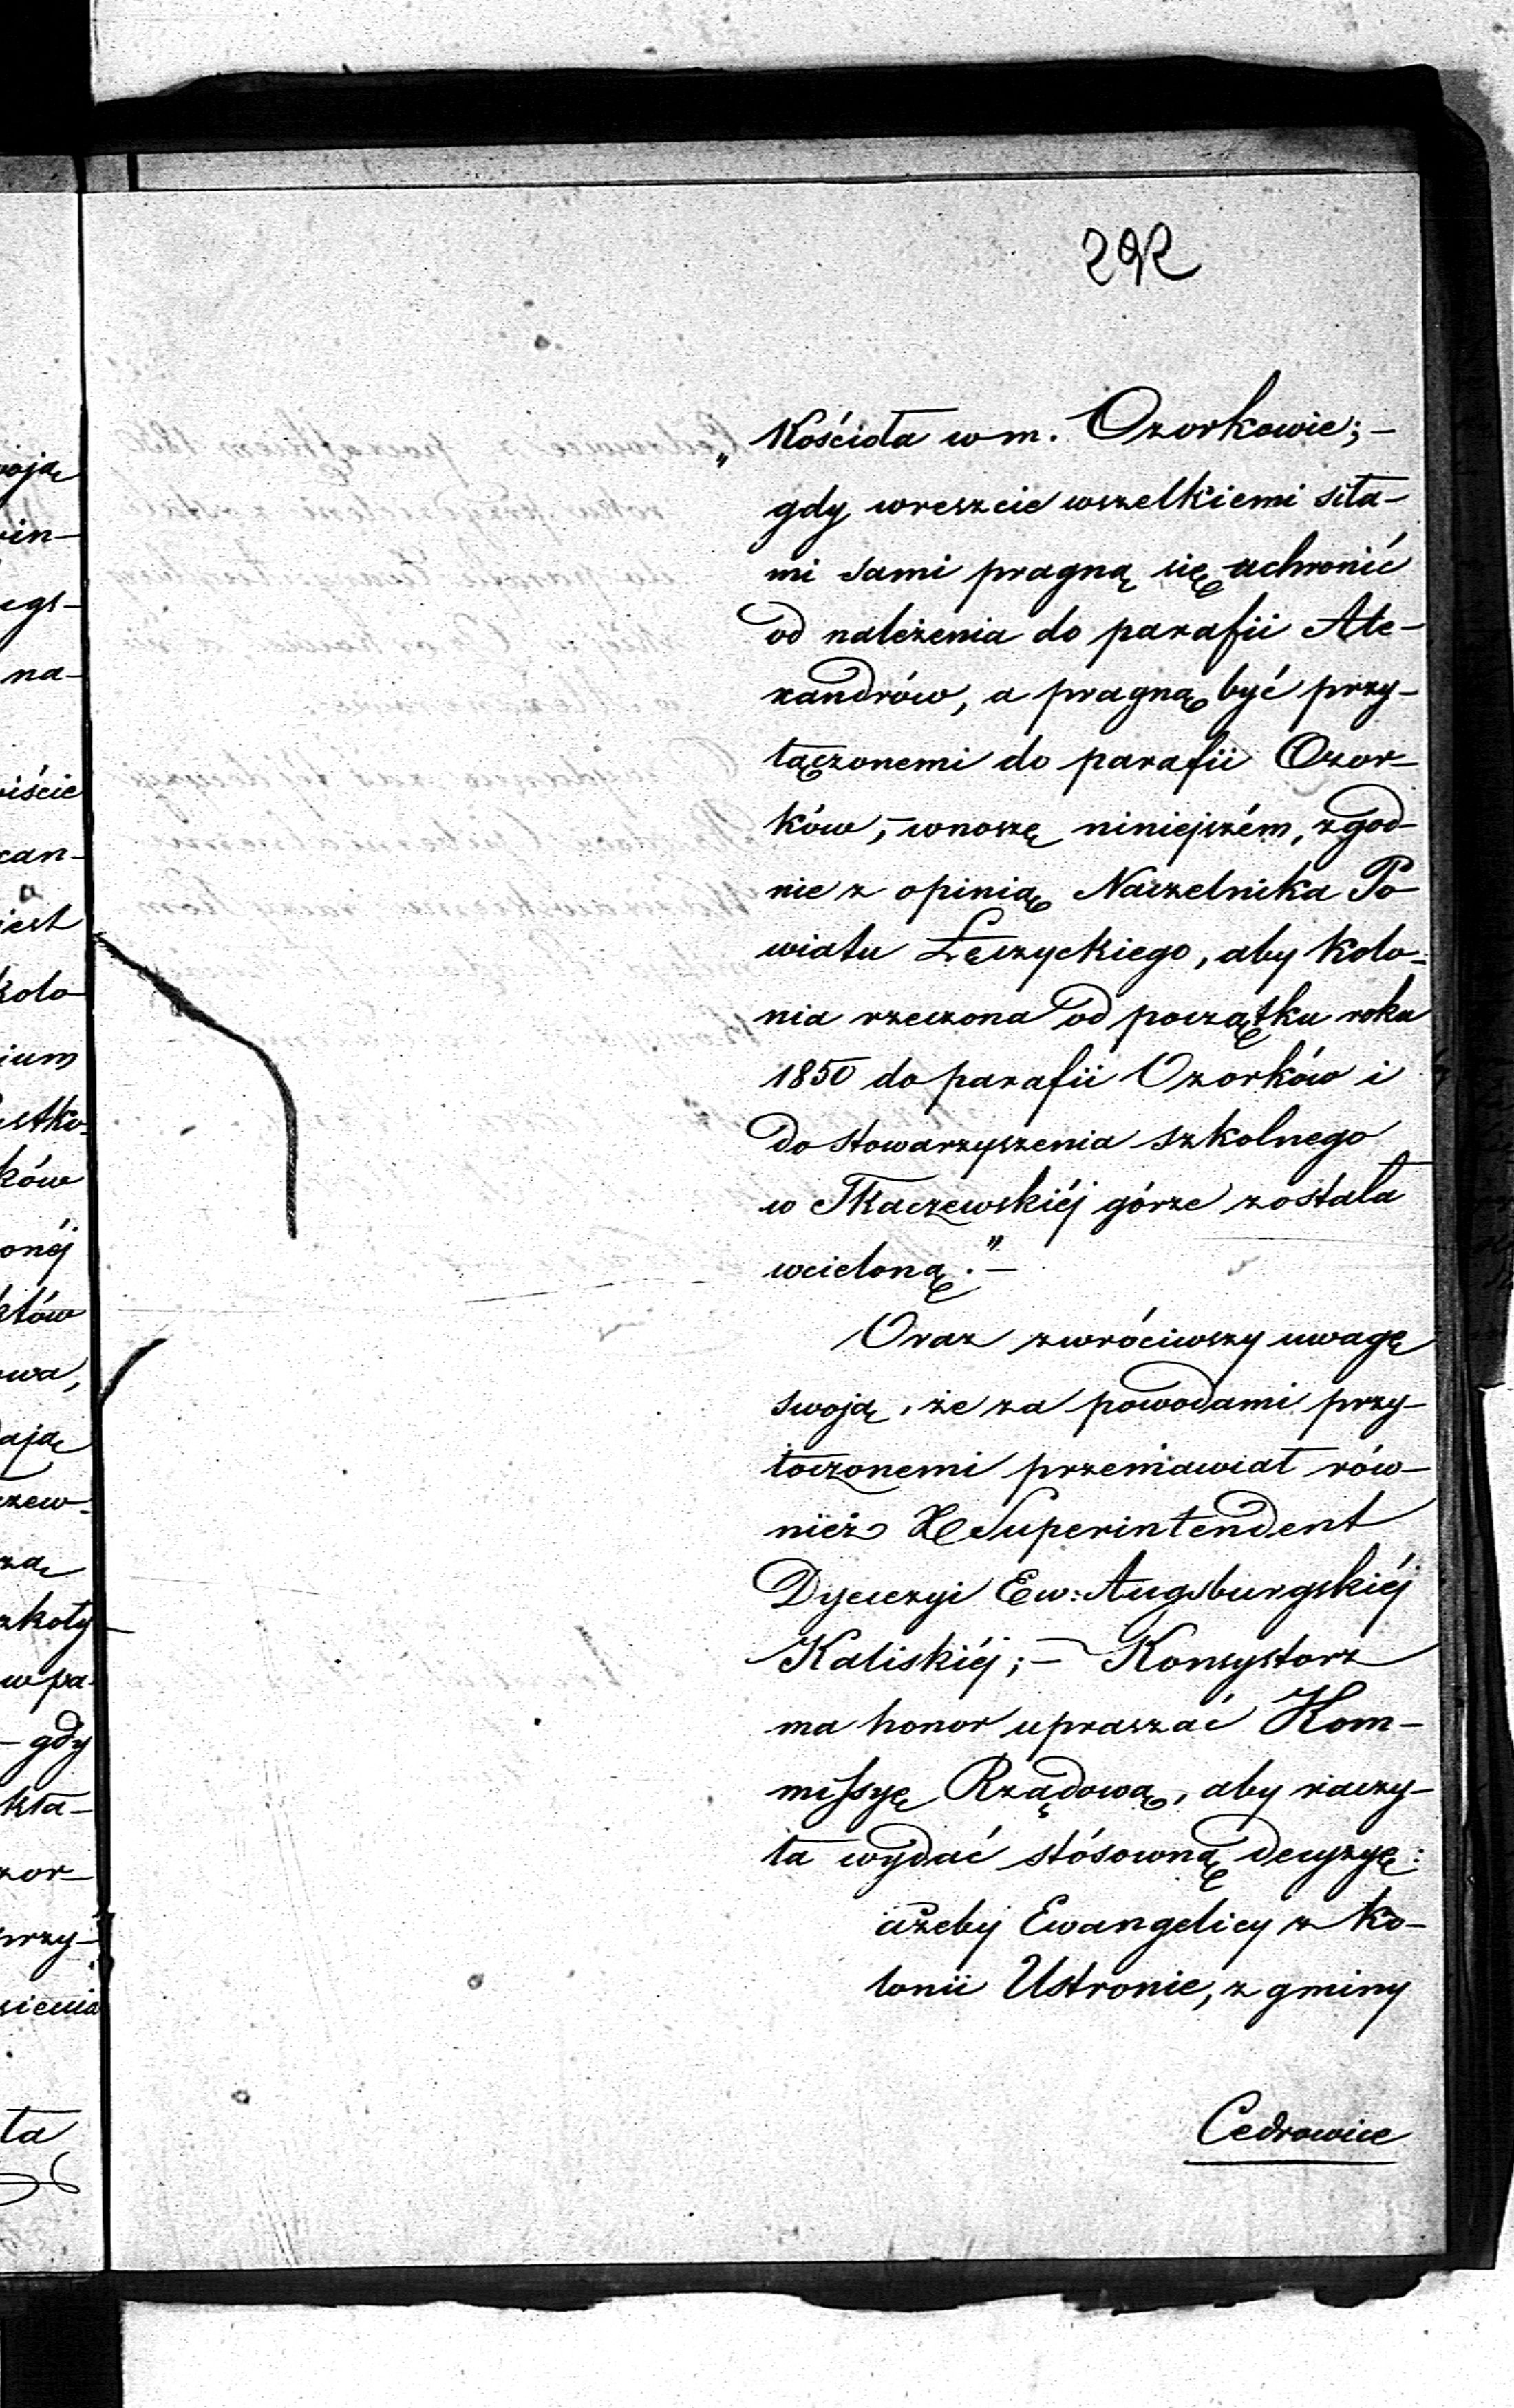 292
„Kościoła w m. Ozorkowie; —
gdy wreszcie wszelkiemi siła—
mi sami pragną się uchronić
od należenia do parafii Ale—
xandrów, a pragną być przy—
łączonemi do parafii Ozor—
ków, — wnoszę niniejszém, zgod—
nie z opinią Naczelnika Po
wiatu Łęczyckiego, aby kolo-
nia rzeczona od początku roku
1850 do parafii Ozorków i
do stowarzyszenia szkolnego
w Tkaczewskiéj górze została
wcieloną." —
Oraz zwróciwszy uwagę
swoją, że za powodami przy—
toczonemi przemawiał rów—
nież X Superintendent
Dyecezyi Ew: Augsburgskiéj
Kaliskiéj; — Konsystorz
ma honor upraszać Kom—
missyę Rządową, aby raczy—
ła wydać stósowną decyzyę:
ażeby Ewangelicy z ko—
lonii Ustronie, z gminy
Cedrowice